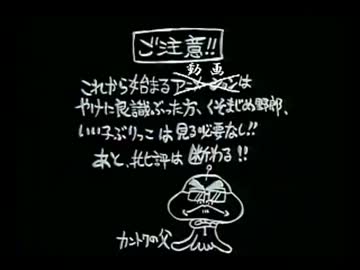 ご注意!!
動画
これから始まるアニメーションは
やけに良識ぶった方、くそまじめ野郎、
いい子ぶりっこは見る必要なし!!
あと、批評は断わる!!
カントクの父